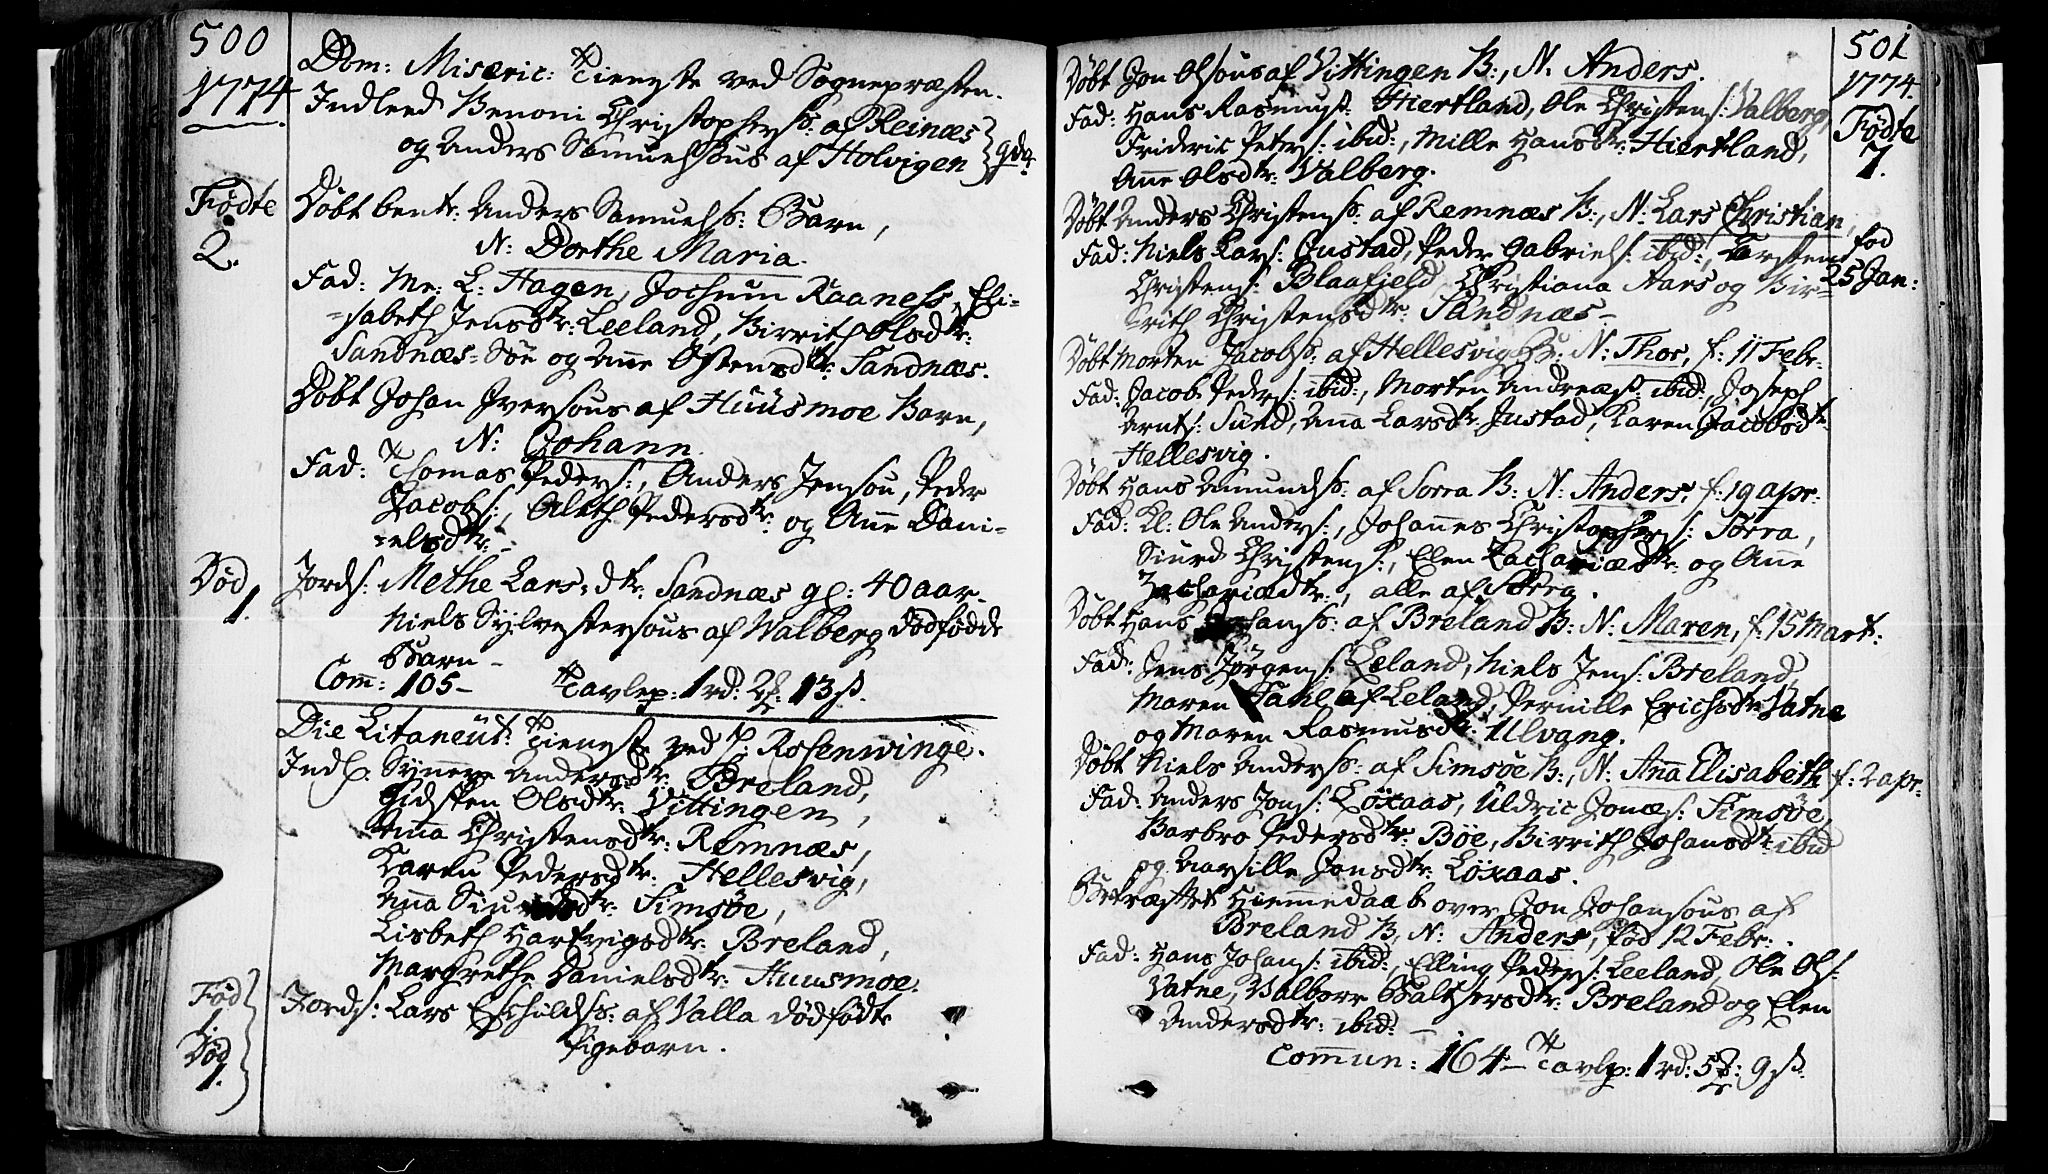 500
1774.
Dom: Miseric: Tieneste ved Sognepræsten.
Indleed Benoni Christophers: af Reinæs
og Anders Samuelsøns af Holvigen } gdk.
Fødte
2.
Døbt bente: Anders Samuels: Barn,
N: Dorthe Maria.
Fad: Mr: L: Hagen, Jochum Raaness, Eli-
sabeth Jensdtr: Leeland, Birrith Olsdtr:
Sandnæs-Søe og Ane Østensdtr: Sandnæs.
Døbt Johan Iversøns af Huusmoe Barn,
N: Johann.
Fad: Thomas Peders:, Anders Jensøn, Peder
Jacobs:, Aleth Pedersdtr: og Ane Dani-
elsdtr: -
Død
1.
Jords: Methe Lars-dtr: Sandnæs gl: 40 aar-
Niels Sylvestersøns af Walberg dødfødde
Barn -
Com: 105 - Tavlep: 1 rd: 2 13 ß.
Die Litaneut: Tieneste ved H: Rosenwinge.
Indl. Synneve Andersdtr: Breland,
Gidsken Olsdtr: Vittingen,
Anna Christensdtr: Remnæs,
Karen Pedersdtr: Hellesvig,
Anna Siurdsdtr: Simsøe,
Lisbeth Hartvigsdtr: Breland,
Margrethe Danielsdtr: Huusmoe.
Fød
1.
Død
1.
Jords: Lars Eschilds: af Valla dødfødte
Pigebarn.
501
1774.
Fødte
7.
Døbt Jon Olsøns af Vittingen B:, N. Anders.
Fad: Hans Rasmuss: Hiertland, Ole Christens: Valberg,
Frideric Peters: ibid:, Mille Hansdtr: Hiertland,
Ane Olsdtr: Valberg.
Døbt Anders Christens: af Remnæs B:, N: Lars Christian, fød
25 Jan:
Fad: Niels Lars: Justad, Peder Gabriels: ibid:, Torsten
Christens: Blaafjeld, Christiana Aars og Bir-
rith Christensdtr: Sandnæs -
Døbt Morten Jacobs: af Hellesvig B: N: Thor, f: 11 Febr.
Fad: Jacob Peders: ibid:, Morten Andreæs: ibid:, Joseph
Arnts: Sund, Ana Larsdtr Justad, Karen Jacobsdtr
Hellesvig.
Døbt Hans Amunds: af Sorra B: N: Anders. f: 19 apr:
Fad: Kl: Ole Anders:, Johannes Christophers: Sorra,
Siurd Christens:, Elen Zachariædtr: og Ane
Zachariædtr:, alle af Sorra.
Døbt Hans Johans: af Breland B: N: Maren, f: 15 Mart:
Fad: Jens Jørgens: Leland, Niels Jens: Breland,
Maren Fahl af Leland, Pernille Erichsdtr Vatne
og Maren Rasmusdtr: Ulvang.
Døbt Niels Anders: af Simsøe B:, N: Ana Elisabeth f: 2 apr:
Fad: Anders Jons: Løxaas, Uldric Jonæs: Simsøe,
Barbro Pedersdtr: Bøe, Birrith Johansdtr: ibid
og Marsille Jonsdtr: Løxaas.
Bekræftet Hiemmedaab over Jon Johansøns af
Breland B, N: Anders, fød 12 Febr:.
Fad: Hans Johans: ibid:, Elling Peders: Leeland, Ole Ols:
Vatne, Walborr Baltzersdtr: Breland og Elen
Andersdtr: ibid: -
Commun: 164 - Tavlp: 1 rd: 5 : 9 ß.